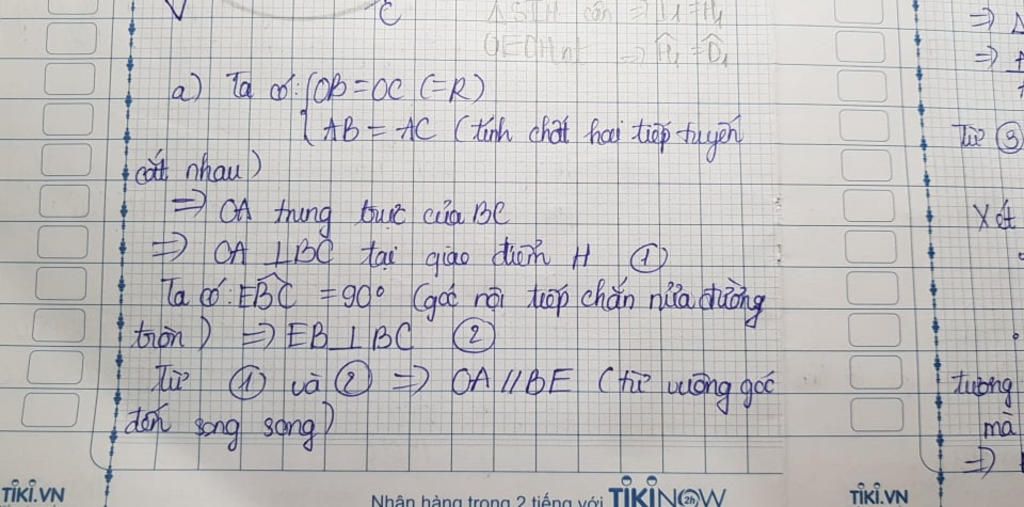 C
△SIH cân => I₁ = H₁
OECH nt => Ĥ₁ = Ô₁
a) Ta có: {OB = OC (=R)
{AB = AC (tính chất hai tiếp tuyến
cắt nhau)
=> OA trung trực của BC
=> OA ⊥ BC tại giao điểm H ①
Ta có: EBC = 90° (góc nội tiếp chắn nửa đường
tròn) => EB ⊥ BC ②
Từ ① và ② => OA // BE (từ vuông góc
đến song song)
=> △
=>
Từ ③
Xét
tương
mà
=>
TIKI.VN
Nhận hàng trong 2 tiếng với TIKINOW 2h
TIKI.VN